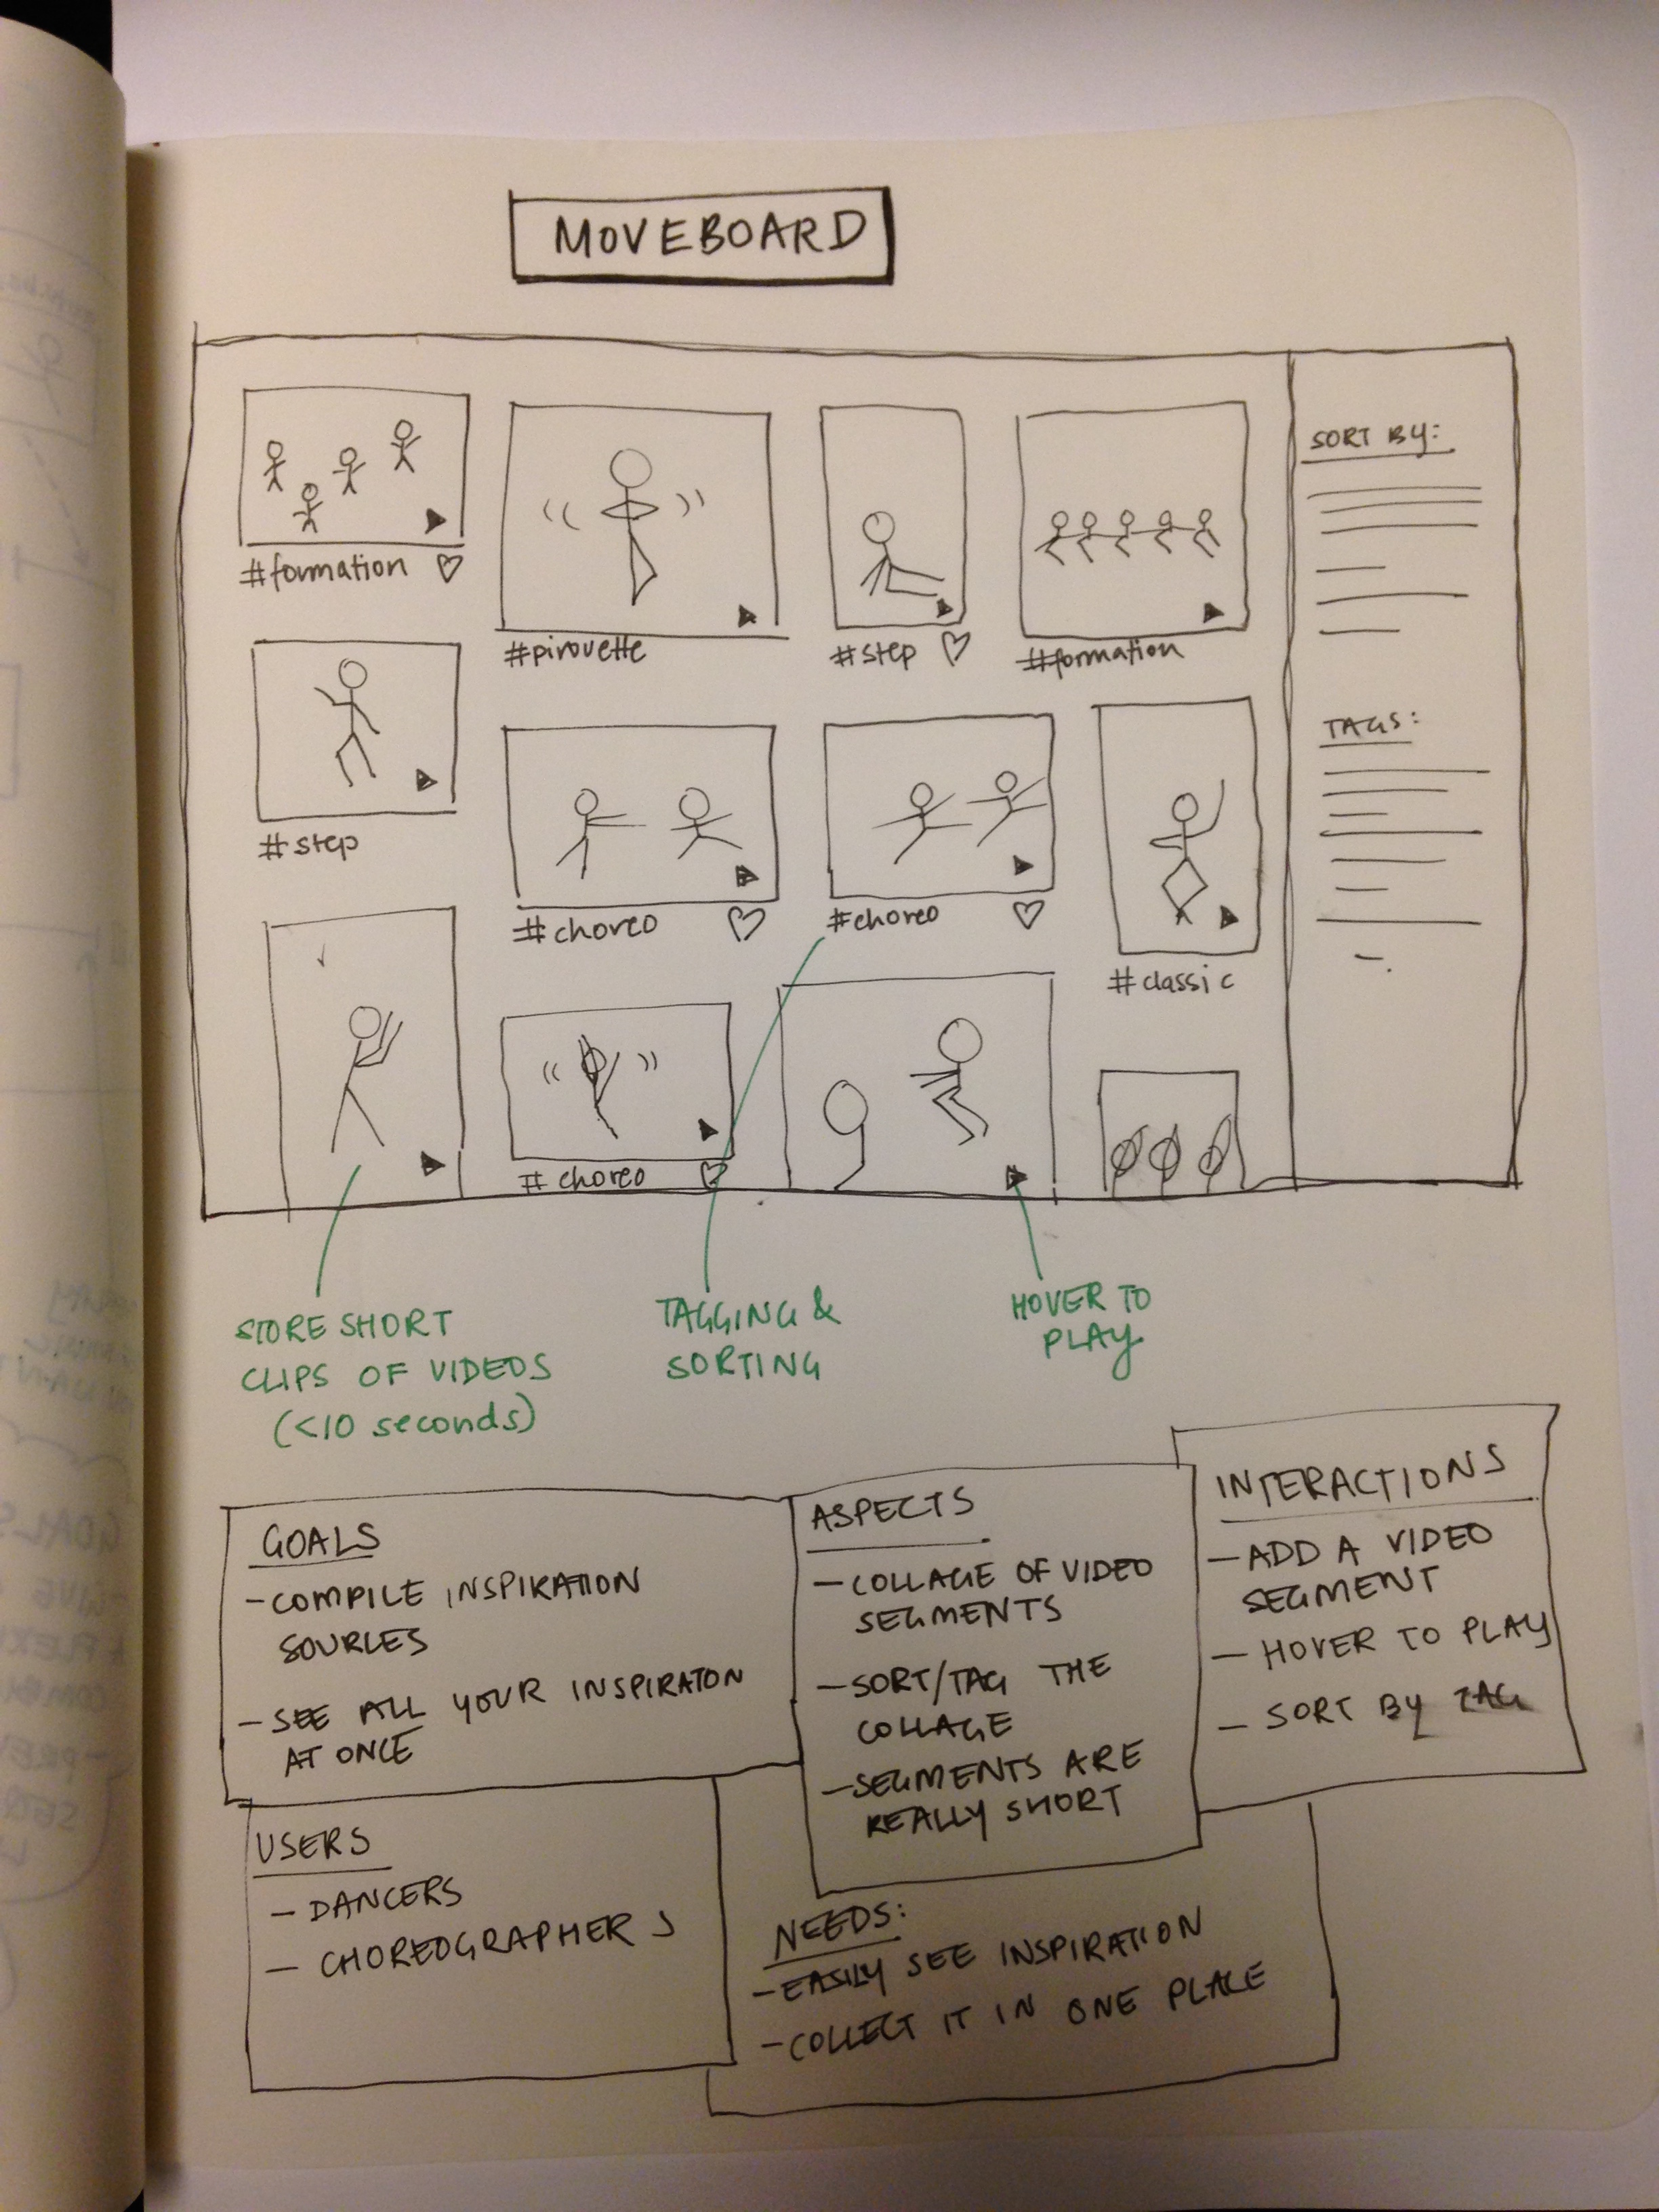 MOVEBOARD
#formation
#pirouette
#step
#formation
SORT BY:
#step
#choreo
#choreo
#classic
TAGS:
#choreo
STORE SHORT
CLIPS OF VIDEOS
(<10 seconds)
TAGGING &
SORTING
HOVER TO
PLAY
GOALS
- COMPILE INSPIRATION
SOURCES
- SEE ALL YOUR INSPIRATON
AT ONCE
USERS
- DANCERS
- CHOREOGRAPHERS
ASPECTS
- COLLAGE OF VIDEO
SEGMENTS
- SORT/TAG THE
COLLAGE
- SEGMENTS ARE
REALLY SHORT
INTERACTIONS
- ADD A VIDEO
SEGMENT
- HOVER TO PLAY
- SORT BY TAG
NEEDS:
- EASILY SEE INSPIRATION
- COLLECT IT IN ONE PLACE